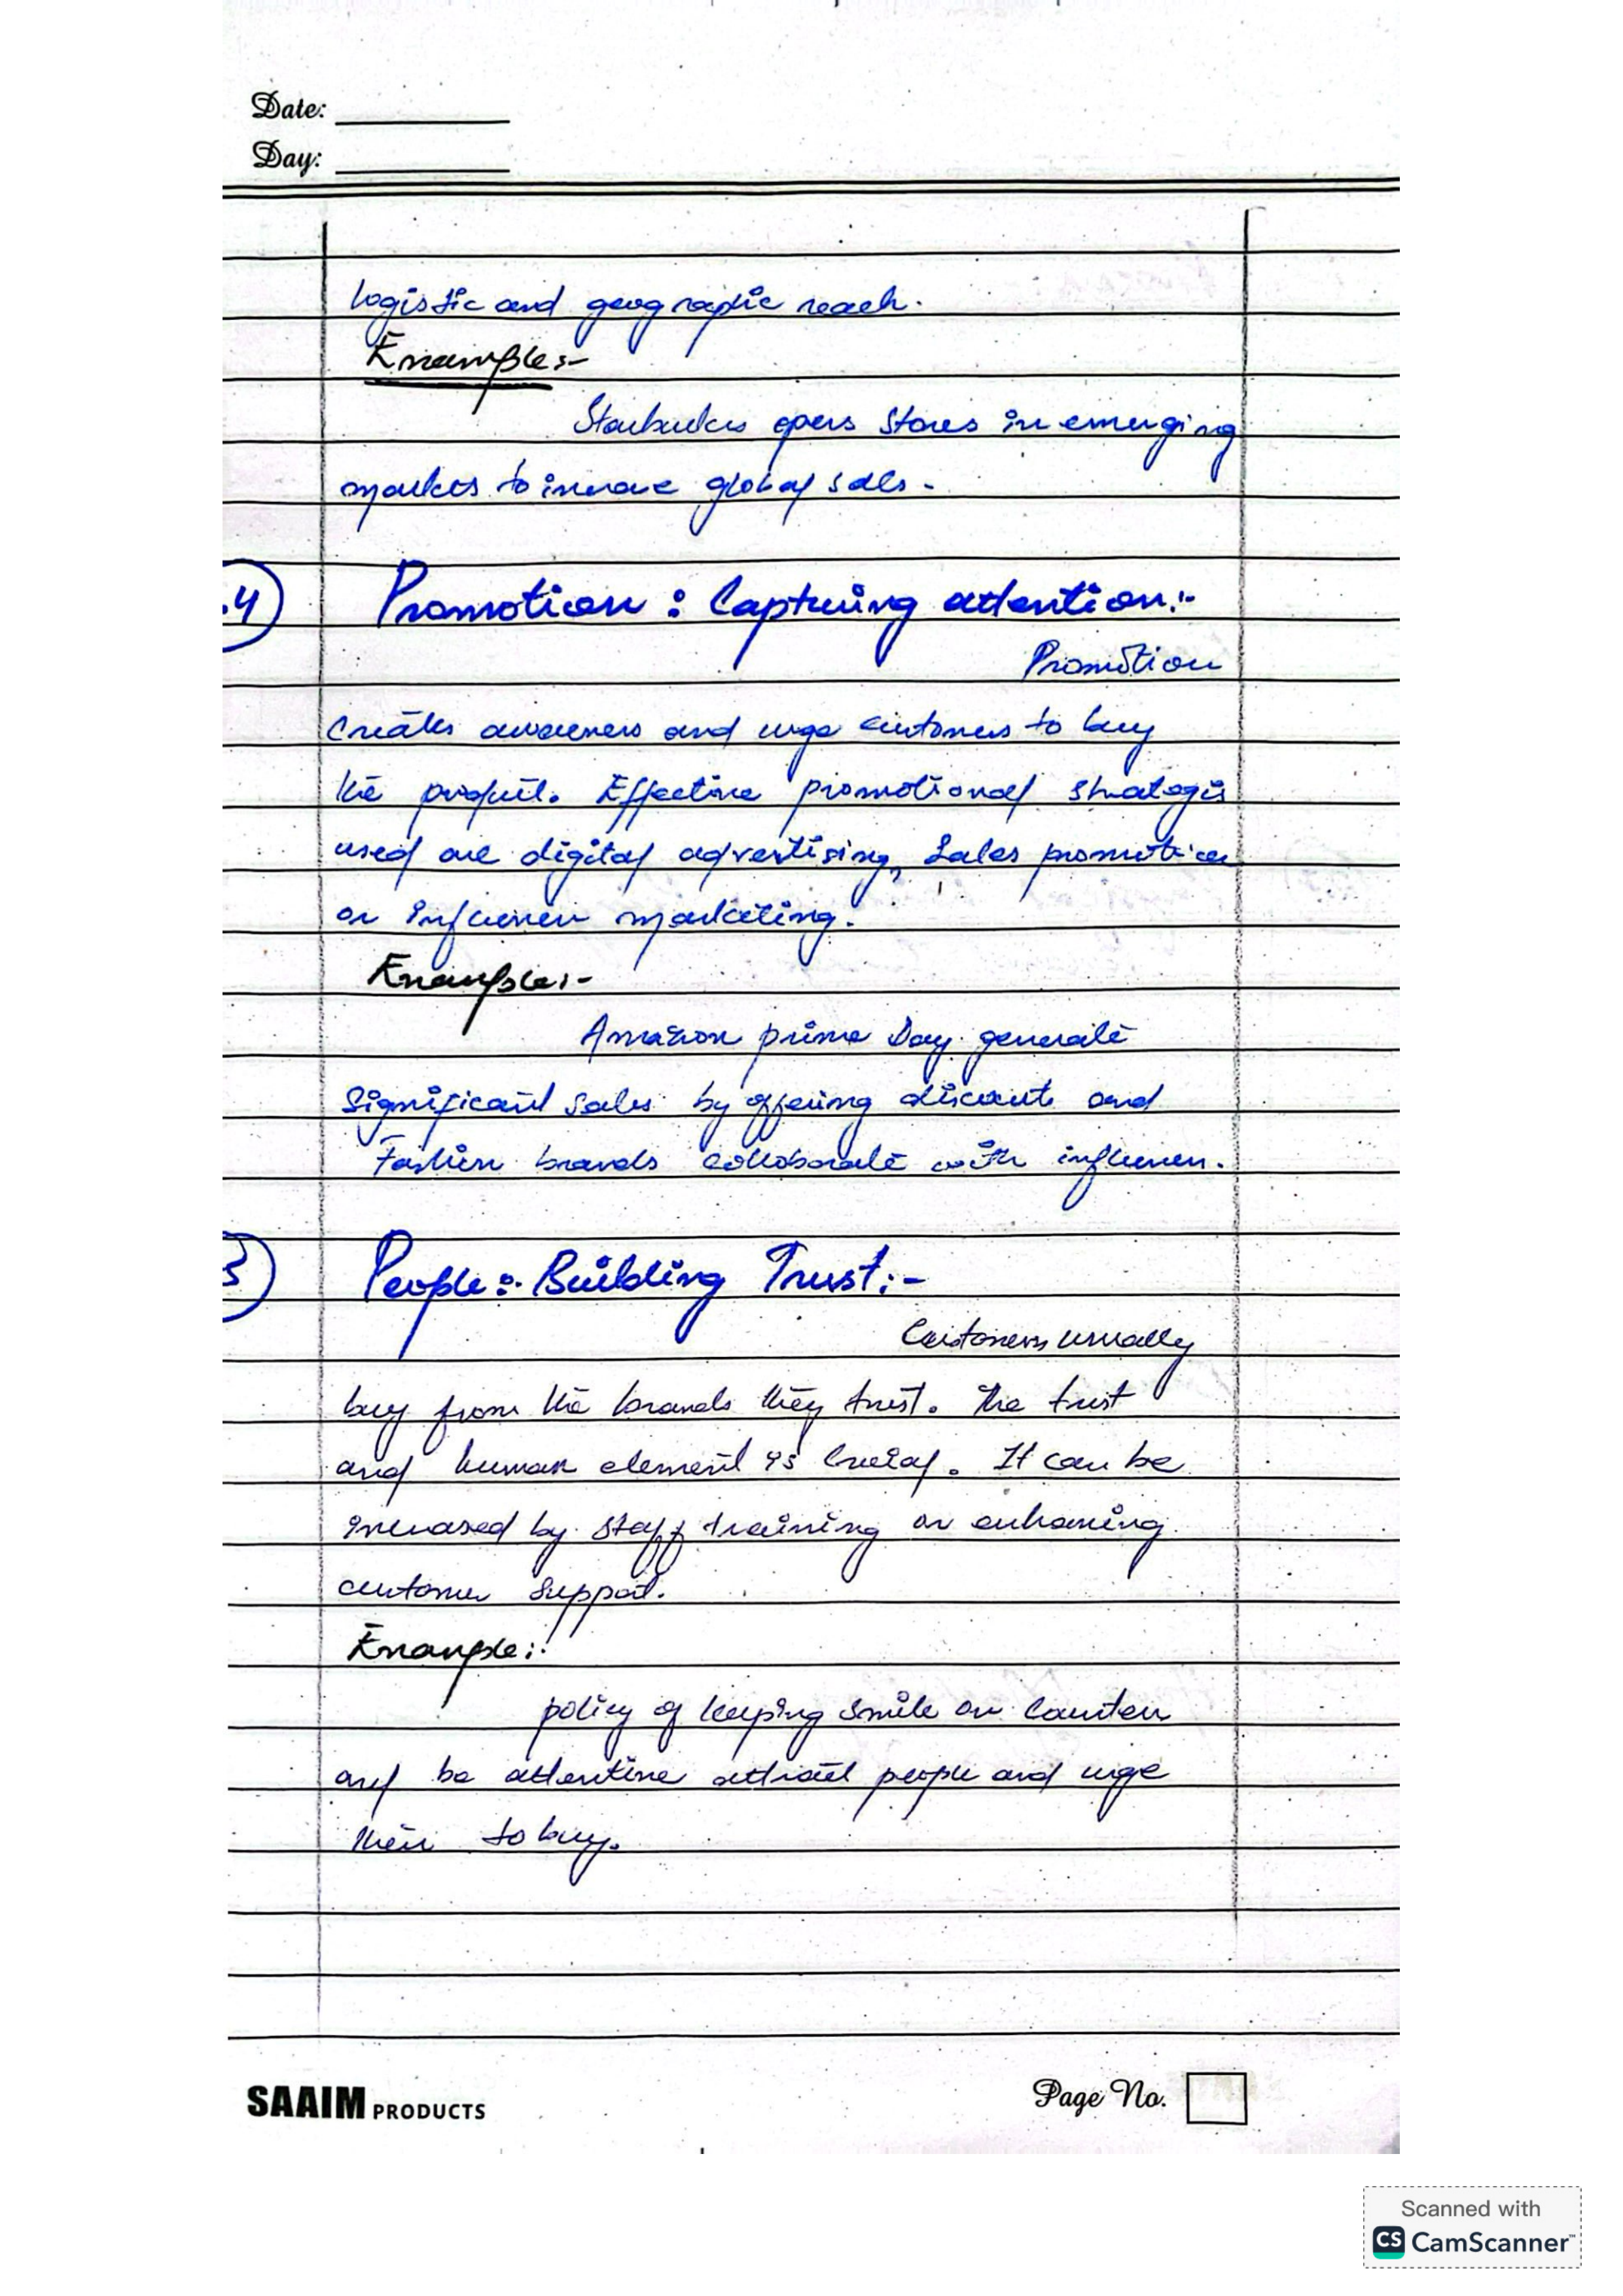 Date:
Day:
logistic and geographic reach.
Example:-
Starbucks opens stores in emerging
markets to increase global sales.
.4) Promotion : Capturing attention:-
Promotion
creates awareness and urge customers to buy
the product. Effective promotional strategis
used are digital advertising, Sales promotion
or influencer marketing.
Example:-
Amazon prime Day generate
Significant sales by offering discounts and
Fashion brands collaborate with influencer.
5) People:- Building Trust:-
Customers usually
buy from the brands they trust. The trust
and human element is Crucial. It can be
increased by staff training or enhancing
customer support.
Example:-
policy of keeping smile on Counter
and be attentive attract people and urge
them to buy.
SAAIM PRODUCTS
Page No.
Scanned with
CS CamScanner™